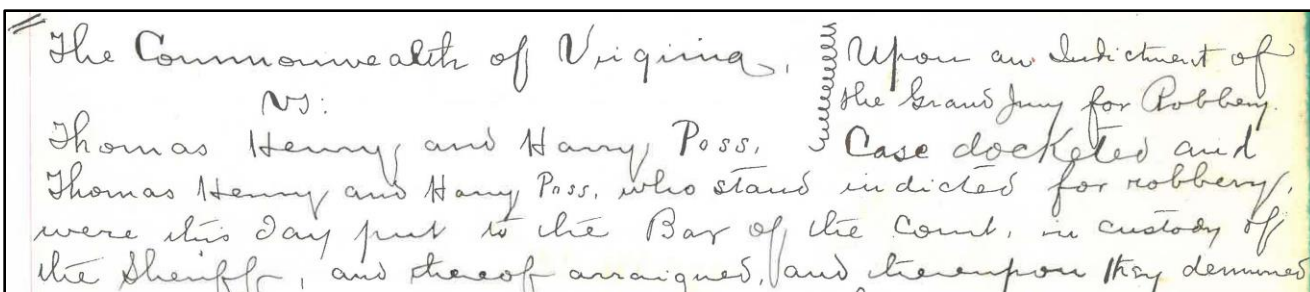 The Commonwealth of Virginia,
vs:
Thomas Henry and Harry Poss.
Upon an Indictment of
the Grand Jury for Robbery.
Case docketed and
Thomas Henry and Harry Poss, who stand indicted for robbery,
were this day put to the Bar of the Court, in custody of
the Sheriff, and thereof arraigned, and thereupon they demurred